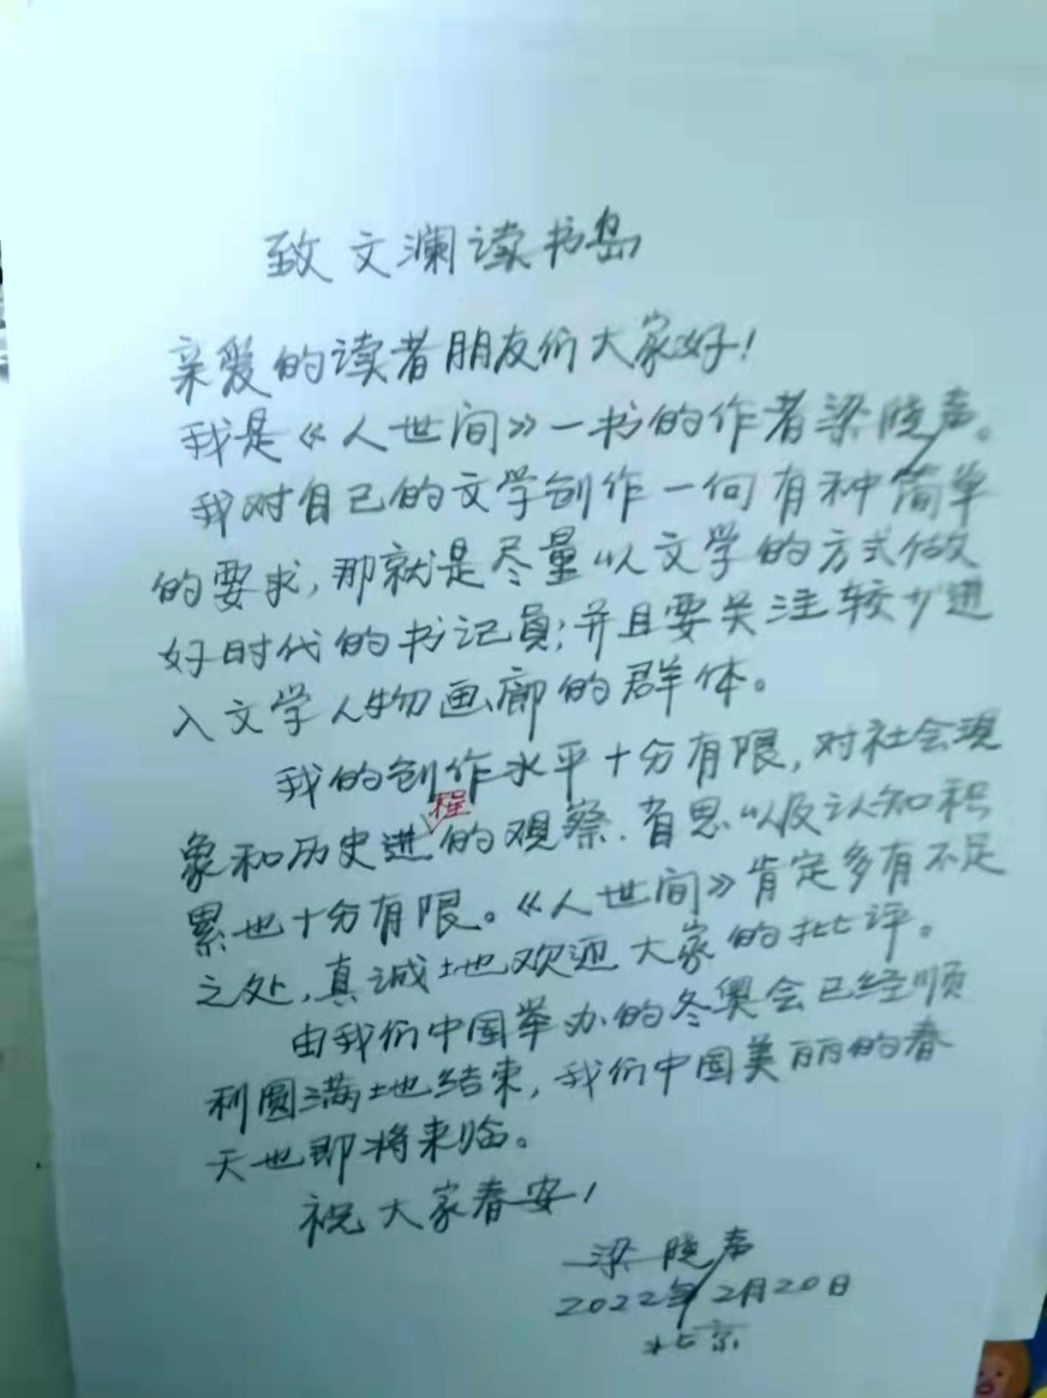 致文澜读书岛
亲爱的读者朋友们大家好!
我是《人世间》一书的作者梁晓声。
我对自己的文学创作一向有种简单
的要求,那就是尽量以文学的方式做
好时代的书记員;并且要关注较少进
入文学人物画廊的群体。
我的创作水平十分有限,对社会现
象和历史进程的观察、省思以及认知积
累也十分有限。《人世间》肯定多有不足
之处,真诚地欢迎大家的批评。
由我们中国举办的冬奥会已经顺
利圆满地结束,我们中国美丽的春
天也即将来临。
祝大家春安!
梁晓声
2022年2月20日
北京